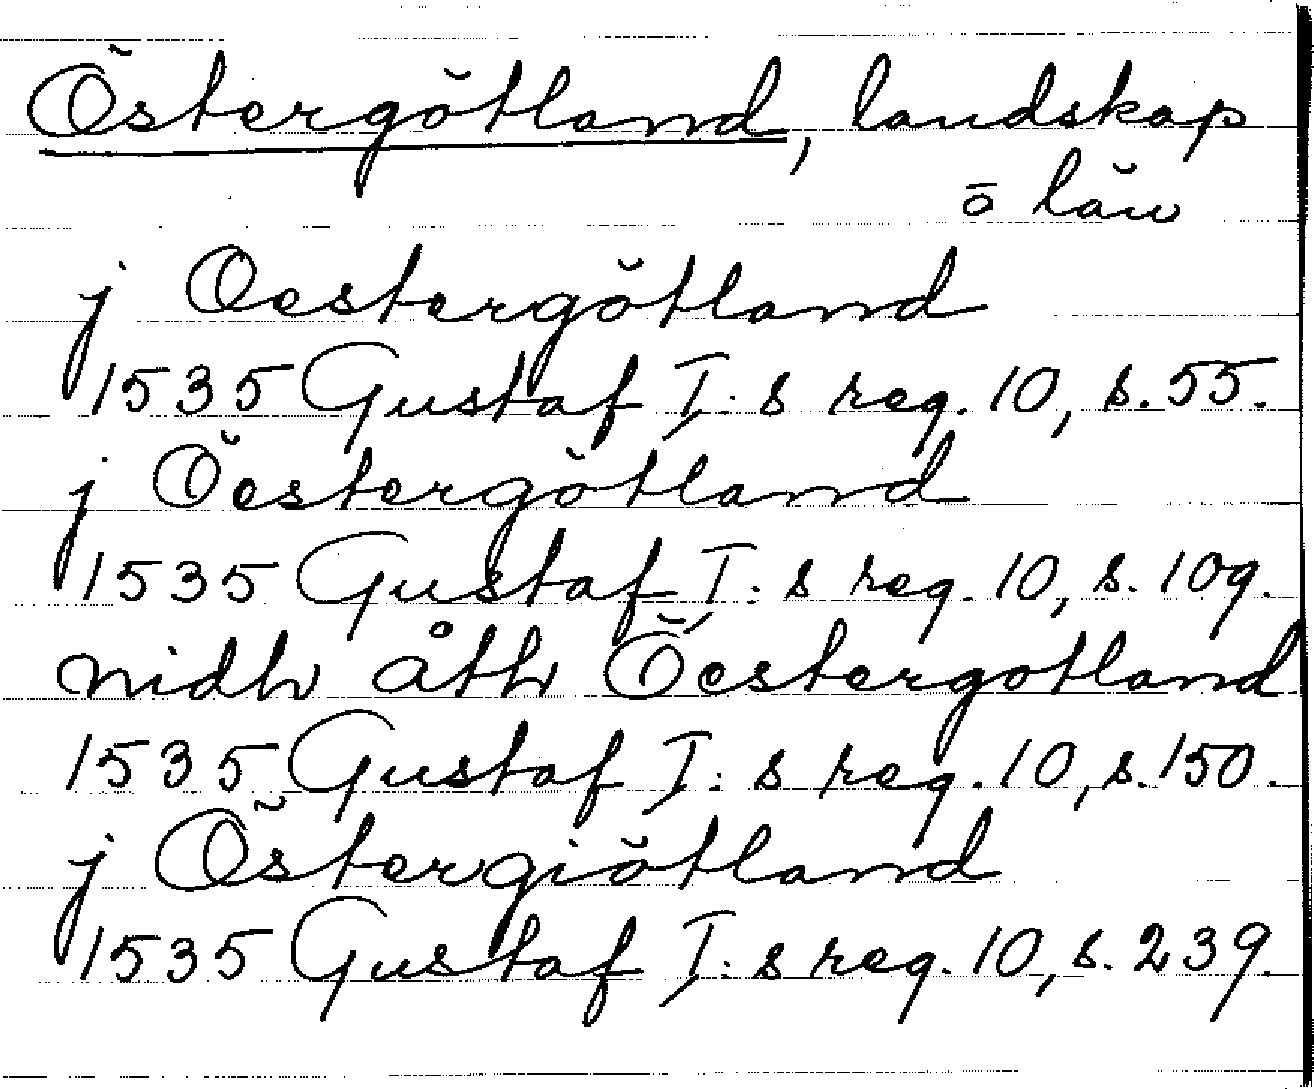 Östergötland, landskap
ō län
j Oestergötland
1535 Gustaf I:s reg. 10, s. 55.
j Öestergötland
1535 Gustaf I:s reg. 10, s. 109.
nidh åth Öestergotland
1535 Gustaf I:s reg. 10, s. 150.
j Östergiötland
1535 Gustaf I:s reg. 10, s. 239.